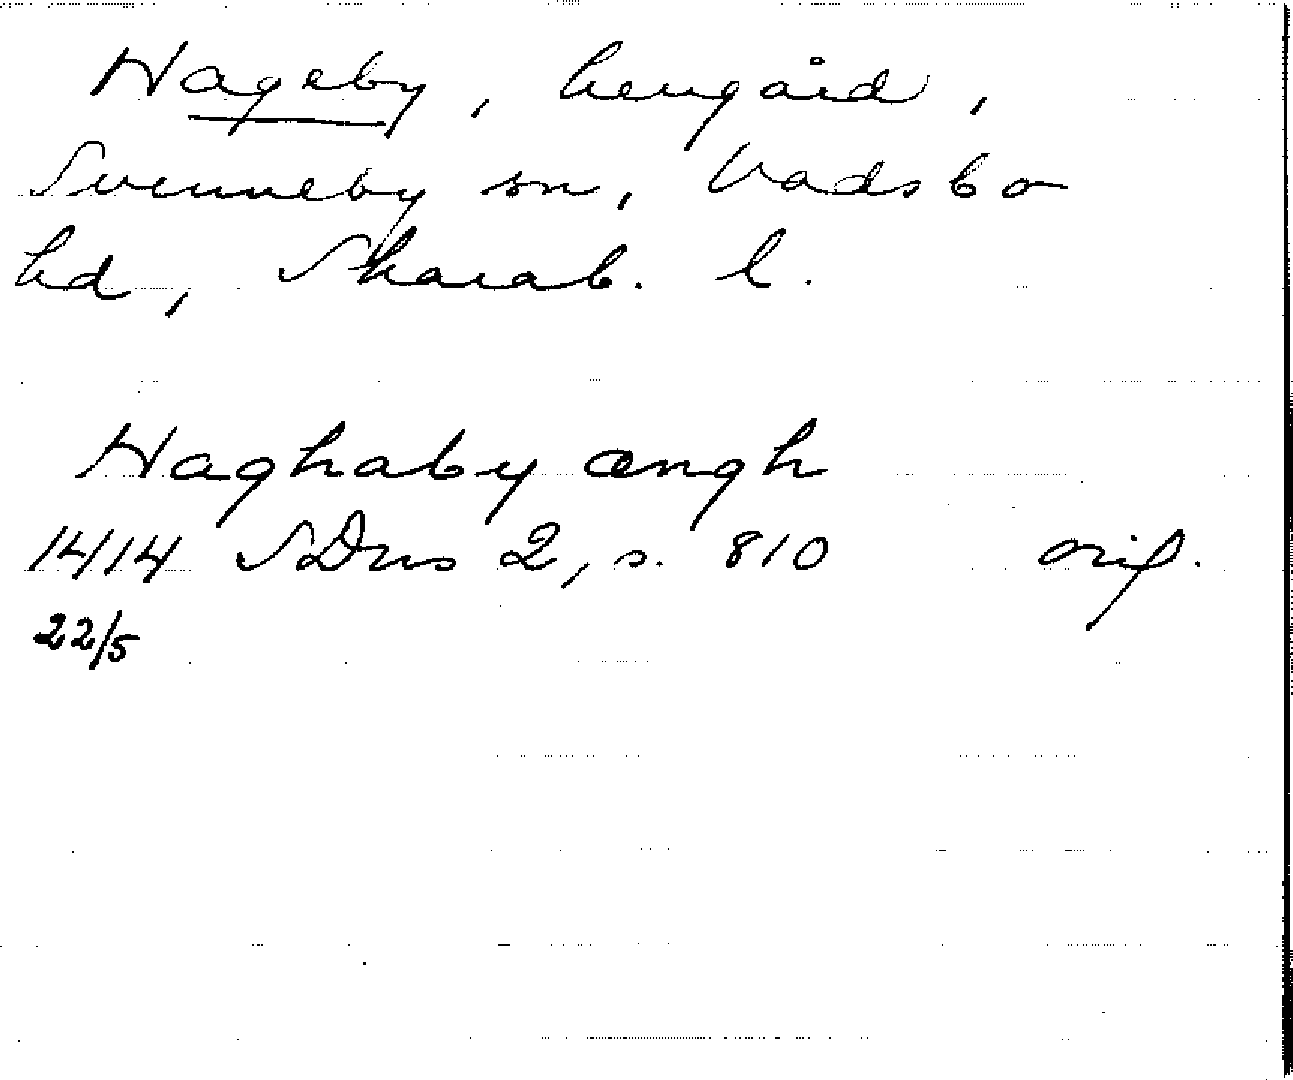 Hageby, herrgård,
Svenneby sn, Vadsbo
hd, Skarab. l.
Haghaby ængh
1414 SDns 2, s. 810 orig.
22/5